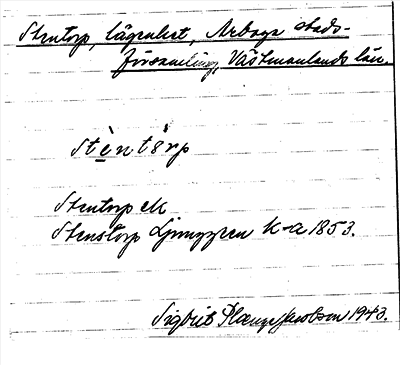 Stentorp, lägenhet, Arboga stads-
församling, Västmanlands län.
Stèntórp
Stentorp ek
Stenstorp Ljunggren k-a 1853.
Sigbrit Plænge Jacobson 1943.